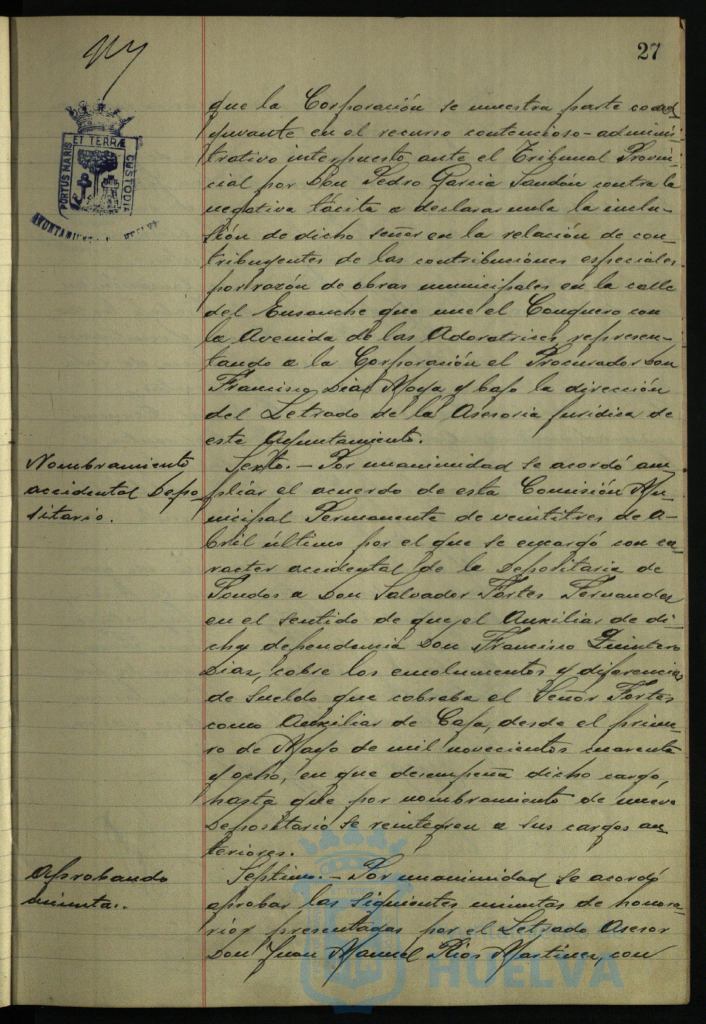 27
PORTUS MARIS ET TERRÆ CUSTODIA
AYUNTAMIENTO HUELVA
que la Corporación se muestra parte coad-
yuvante en el recurso contencioso-adminis-
trativo interpuesto ante el Tribunal Provin-
cial por Don Pedro García contra la
negativa tácita a declarar nula la inclu-
sión de dicho señor en la relación de con-
tribuyentes de las contribuciones especiales
por razón de obras municipales en la calle
del Ensanche que une el Conquero con
la Avenida de las Adoratrices, represen-
tando a la Corporación el Procurador Don
Francisco Diaz Moya y bajo la dirección
del Letrado de la Asesoria Juridica de
este Ayuntamiento.
Nombramiento
accidental Depo-
sitario.
Sexto.- Por unanimidad se acordó am-
pliar el acuerdo de esta Comisión Mu-
nicipal Permanente de veintitres de a-
bril último por el que se encargó con ca-
racter accidental de la Depositaria de
Fondos a Don Salvador Fortes Fernandez
en el sentido de que el Auxiliar de di-
cha dependencia Don Francisco Quintero
Diaz, cobre los emolumentos y diferencias
de sueldo que cobraba el Señor Fortes
como Auxiliar de Caja, desde el prime-
ro de Mayo de mil novecientos cuarenta
y ocho, en que desempeña dicho cargo,
hasta que por nombramiento de nuevo
Depositario se reintegren a sus cargos an-
teriores.
Aprobando
minutas.
Septimo.- Por unanimidad se acordó
aprobar las siguientes minutas de honora-
rios presentadas por el Letrado Asesor
Don Juan Manuel Rios Martinez, con
HUELVA